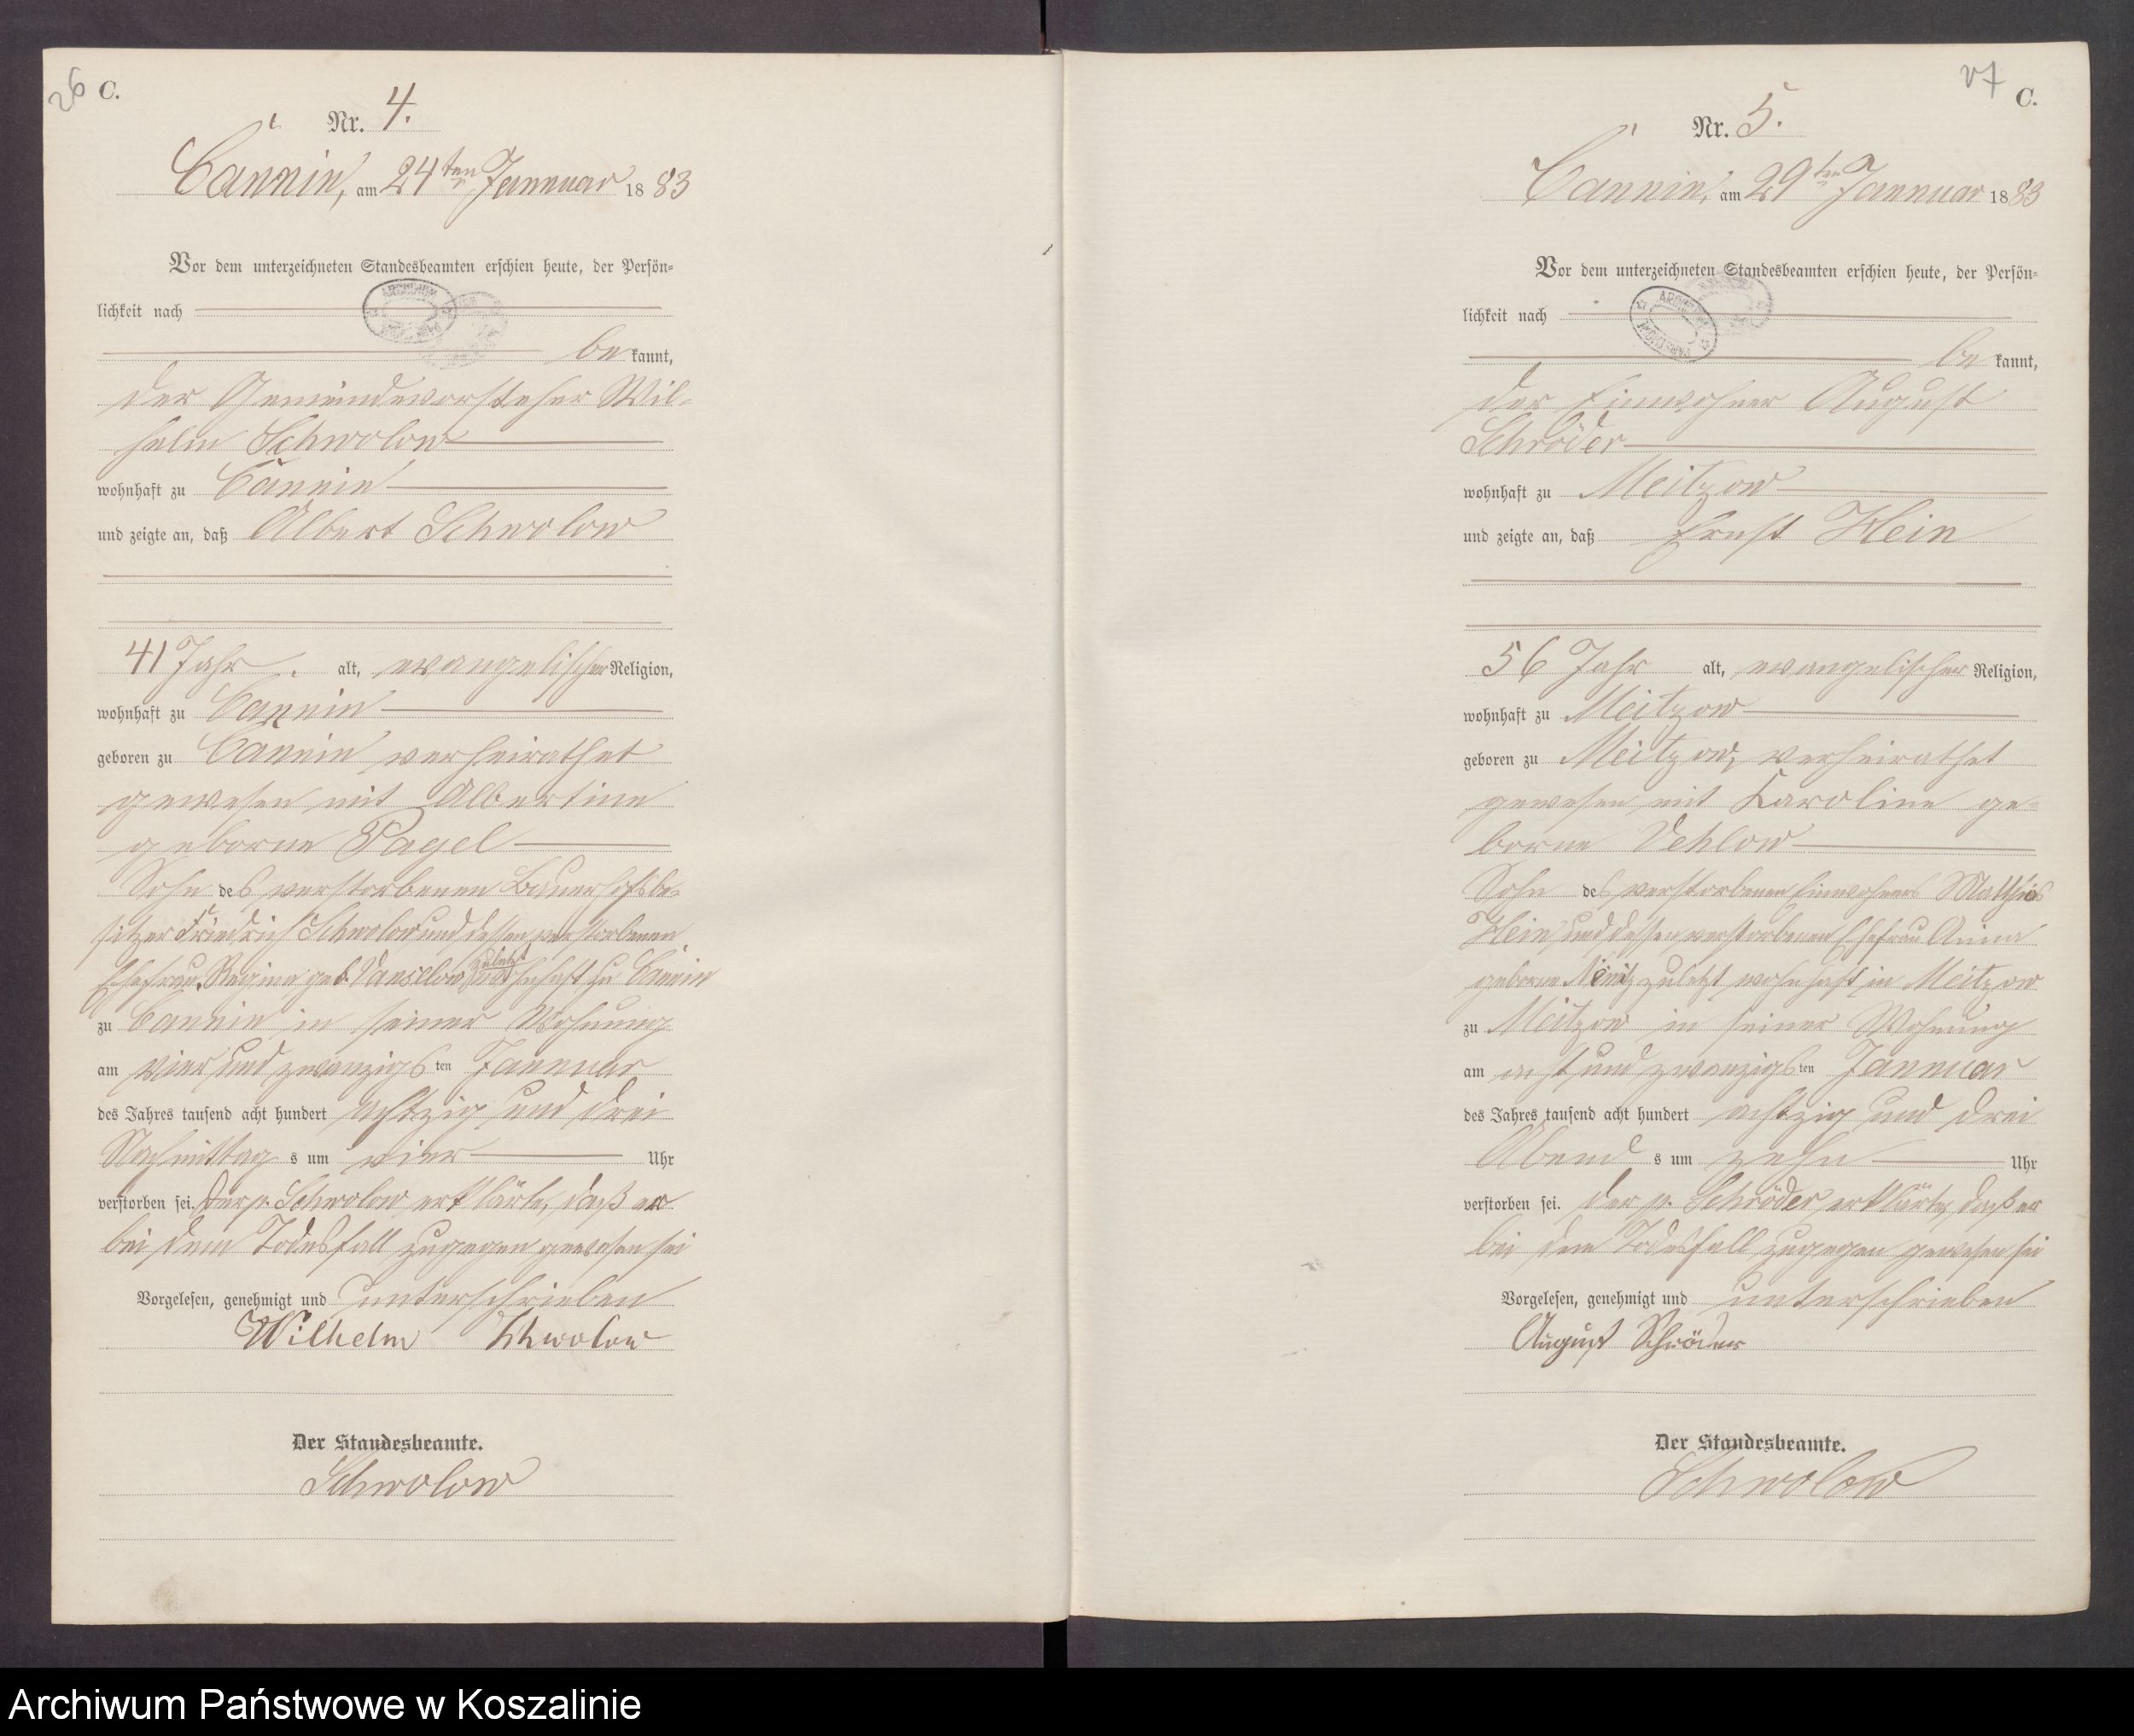 26 C.
Nr. 4.
Cannin, am 24ten Januar 1883
Vor dem unterzeichneten Standesbeamten erschien heute, der Persön-
lichkeit nach
be kannt,
der Gemeindevorsteher Wil-
helm Schwolow
wohnhaft zu Cannin
und zeigte an, daß Albert Schwolow
41 Jahr alt, evangelischer Religion,
wohnhaft zu Cannin
geboren zu Cannin verheirathet
gewesen mit Albertine
geborne Pagel
Sohn des verstorbenen Bauerhofsbe-
sitzer Friedrich Schwolow und dessen verstorbenen
Ehefrau Regine geb. Vanselow zuletzt wohnhaft zu Cannin
zu Cannin in seiner Wohnung
am vier und zwanzigs ten Januar
des Jahres tausend acht hundert achtzig und drei
Nachmittag s um vier Uhr
verstorben sei. Der p. Schwolow erklärte, daß er
bei dem Todesfall zugegen gewesen sei
Vorgelesen, genehmigt und unterschrieben
Wilhelm Schwolow
Der Standesbeamte.
Schwolow
27 C.
Nr. 5.
Cannin, am 29ten Januar 1883
Vor dem unterzeichneten Standesbeamten erschien heute, der Persön-
lichkeit nach
be kannt,
der Einwohner August
Schröder
wohnhaft zu Meitzow
und zeigte an, daß Ernst Hein
56 Jahr alt, evangelischer Religion,
wohnhaft zu Meitzow
geboren zu Meitzow, verheirathet
gewesen mit Karoline ge-
borne Dehlow
Sohn des verstorbenen Einwohners Mathias
Hein und dessen verstorbenen Ehefrau Anna
geborne zuletzt wohnhaft in Meitzow
zu Meitzow in seiner Wohnung
am acht und zwanzigs ten Januar
des Jahres tausend acht hundert achtzig und drei
Abend s um zehn Uhr
verstorben sei. Der p. Schröder erklärte, daß er
bei dem Todesfall zugegen gewesen sei
Vorgelesen, genehmigt und unterschrieben
August Schröder
Der Standesbeamte.
Schwolow
Archiwum Państwowe w Koszalinie